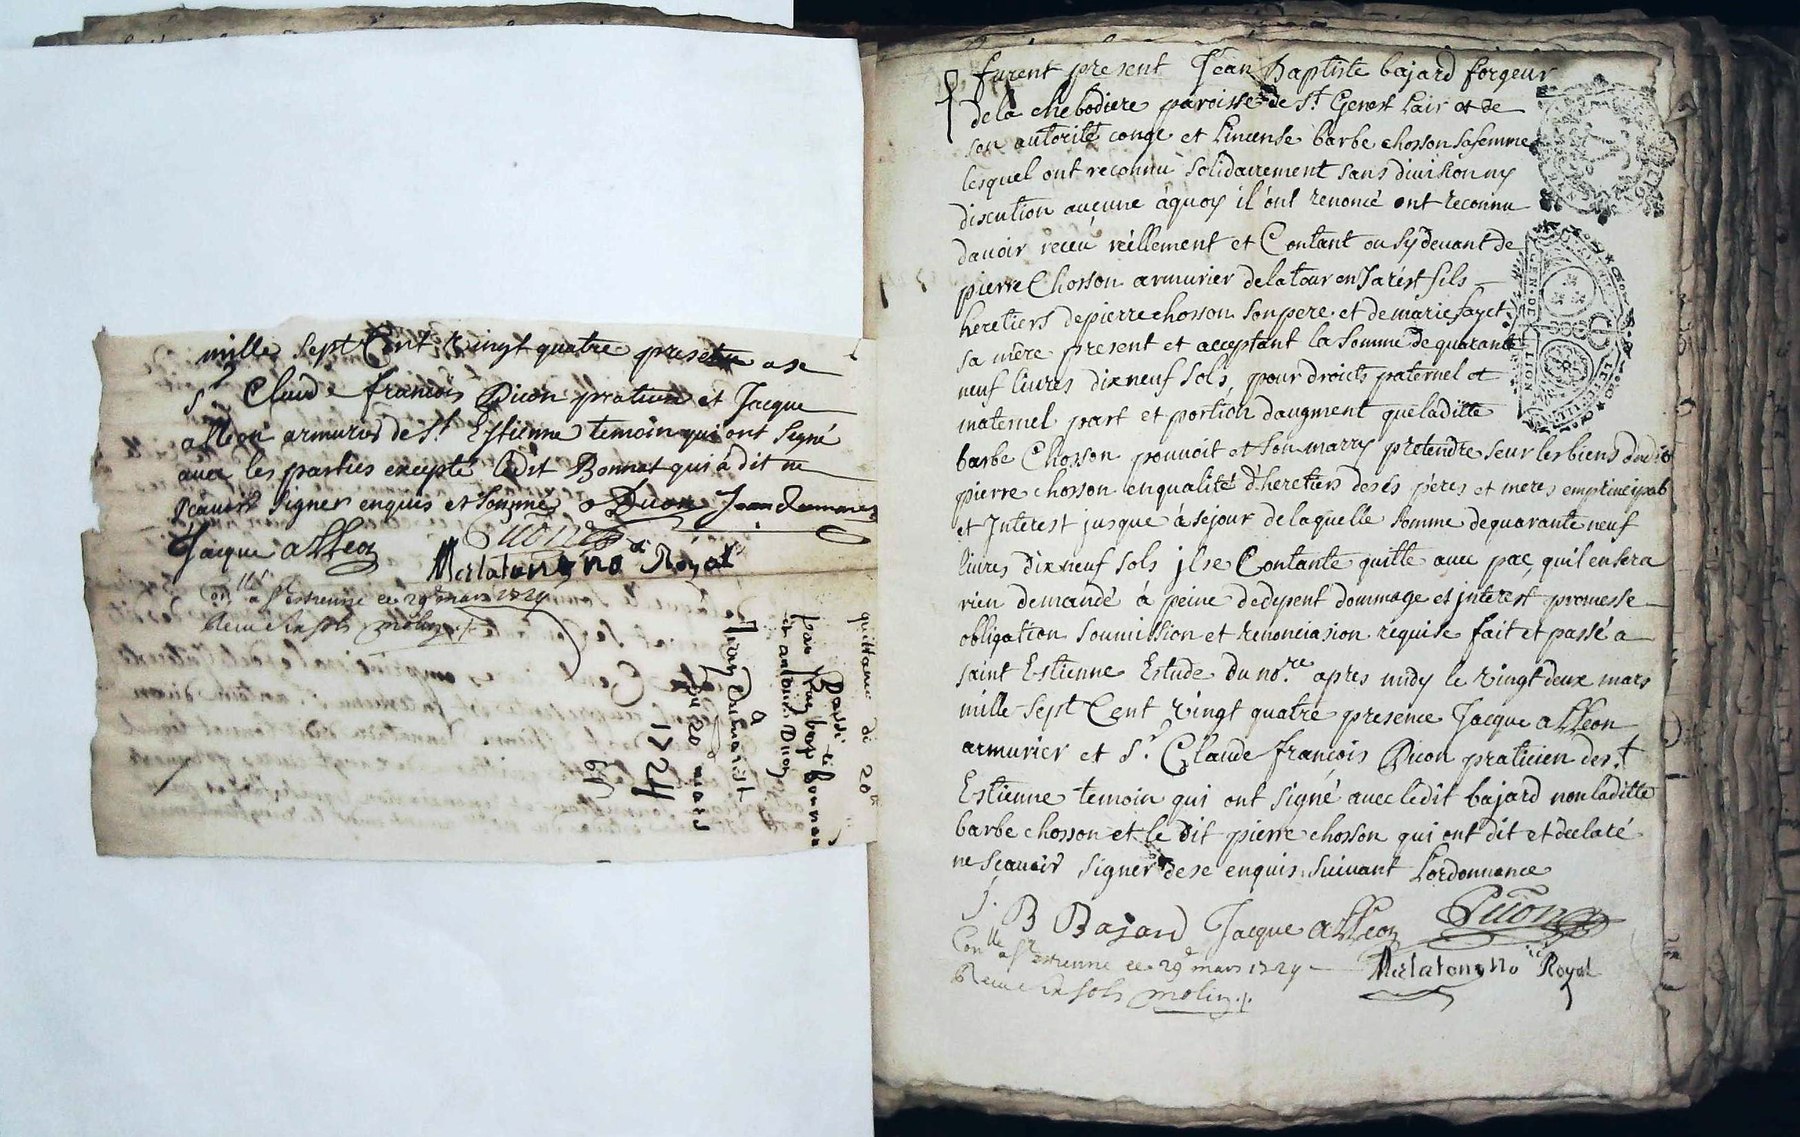 mille sept Cent vingt quatre presence a se
Sr Claude françois Dicon praticien et Jacque
alleon armurier de St. Estienne temoin qui ont signé
avec les parties excepté ledit Bonnet qui a dit ne
sçavoir signer enquis et sommés
Jacque alleon
nore Royal
Conllé a St estienne ce 29e mars 1724
Receu six sols molin
quittance de 20
et antoine Dicon
a
Jean
du 20 mars
1724
61
furent present Jean Baptiste bajard forgeur
de la chebodiere paroisse de St Genest Lair et de
son autorité congé et Lincense barbe chosson sa femme
lesquel ont reconnu solidairement sans division ny
discution aucune aquoy il ont renoncé ont reconnu
davoir receu réellement et Contant ou sy devant de
pierre Chosson armurier de la tour en Jarest fils
heretiers de pierre chosson son pere et de marie fayet
sa mère present et acceptant la somme de quarante
neuf livres dix neuf sols, pour droits paternel et
maternel part et portion daugment que laditte
barbe Chosson pouvoit et son marry pretendre seur les biens dudit
pierre chosson en qualité d'heretiers de sés péres et meres em principal
et Interest jusque a se jour de laquelle somme de quarante neuf
livres dix neuf sols il se Contante quitte avec pac, quil en sera
rien demandé à peine de depent dommage et interest promesse
obligation soumission et renonciasion requise fait et passé a
saint Estienne Estude du nore apres midy le vingt deux mars
mille sept Cent vingt quatre presence Jacque alleon
armurier et Sr Claude françois Dicon praticien de St
Estienne temoin qui ont signé avec ledit bajard non laditte
barbe chosson et le dit pierre chosson qui ont dit et declaré
ne sçavoir signer de ce enquis suivant Lordonnance
J. B Bajard Jacque alleon
Conllé a St estienne ce 29e mars 1724
nore Royal
Receu six sols molin